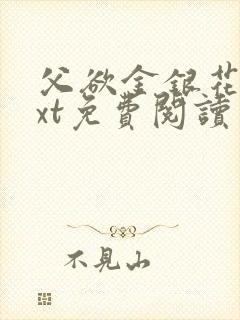 父欲金銀花
xt免費閱讀
不見山